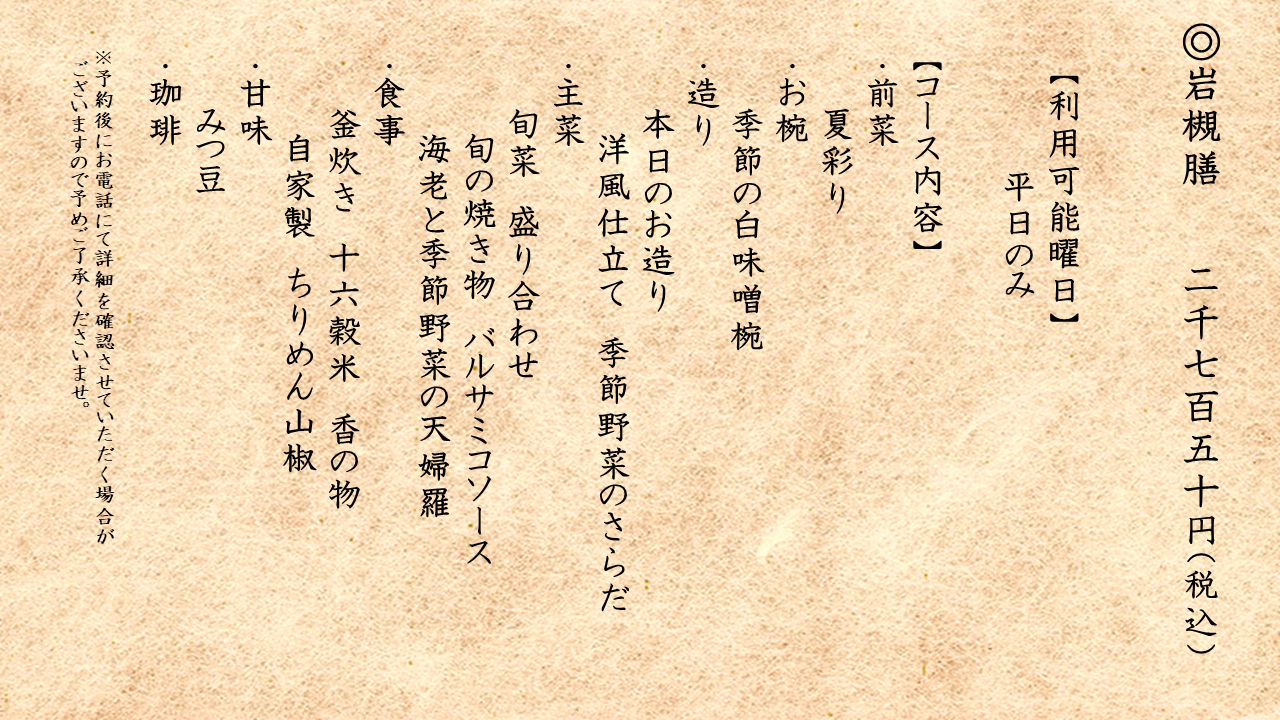 ◎岩槻膳　二千七百五十円（税込）
【利用可能曜日】
平日のみ
【コース内容】
・前菜
夏彩り
・お椀
季節の白味噌椀
・造り
本日のお造り
洋風仕立て　季節野菜のさらだ
・主菜
旬菜　盛り合わせ
旬の焼き物　バルサミコソース
海老と季節野菜の天婦羅
・食事
釜炊き　十六穀米　香の物
自家製　ちりめん山椒
・甘味
みつ豆
・珈琲
※予約後にお電話にて詳細を確認させていただく場合が
ございますので予めご了承くださいませ。